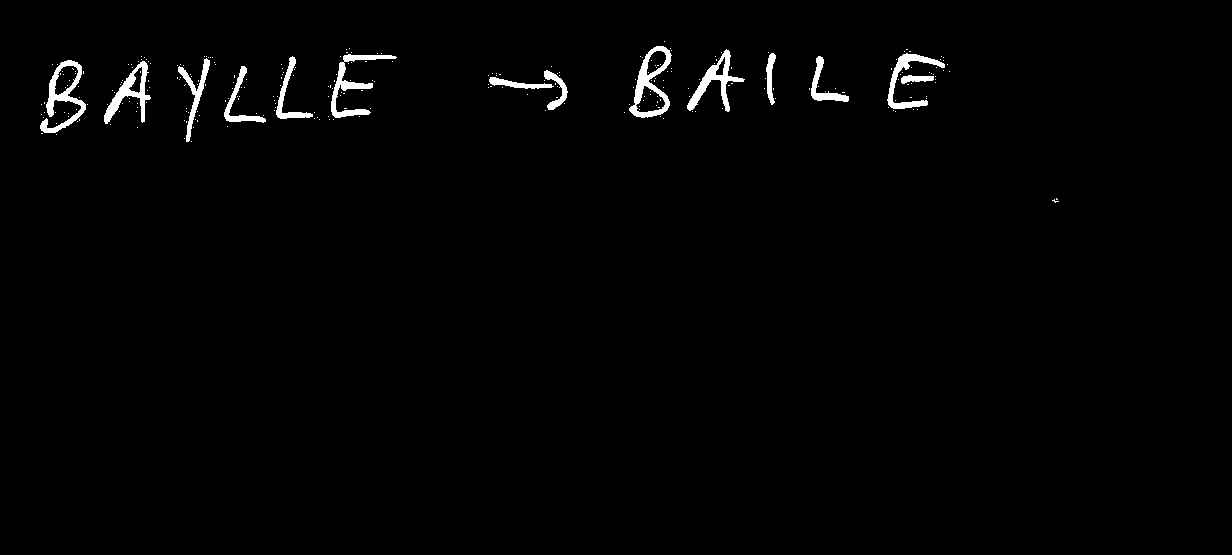 BAYLLE → BAILE